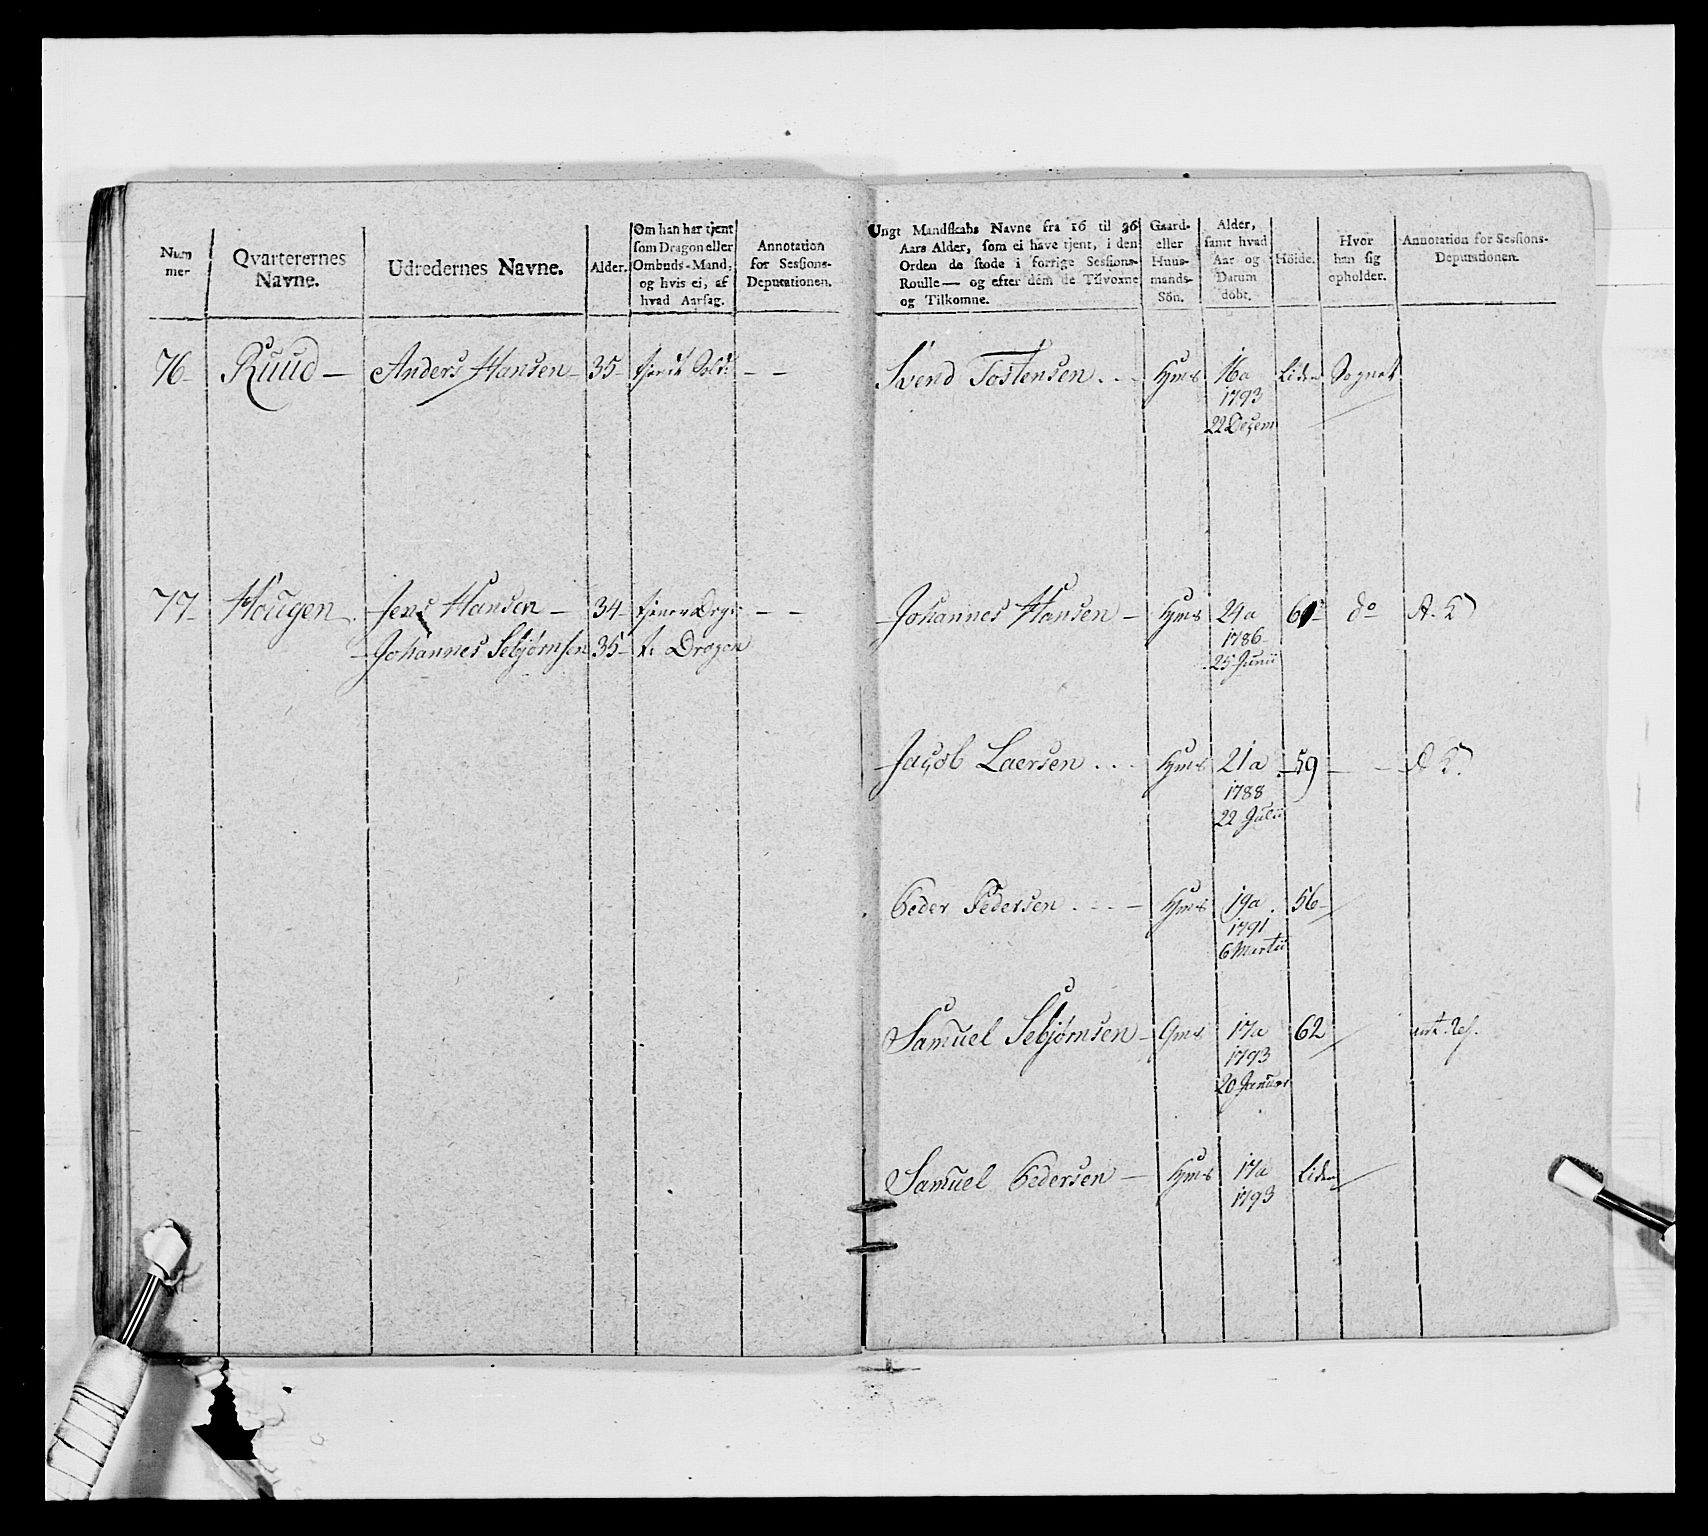 Num
mer
Qvarterernes
Navne.
Udredernes Navne.
Alder.
Om han har tjent
som Dragon eller
Ombuds-Mand;
og hvis ei, af
hvad Aarsag.
Annotation
for Sessions-
Deputationen.
Ungt Mandskabs Navne fra 16 til 36
Aars Alder, som ei have tjent, i den
Orden de stode i forrige Sessions-
Roulle — og efter dem de Tilvoxne
og Tilkomne.
Gaard-
eller
Huus-
mands-
Sön.
Alder,
samt hvad
Aar og
Datum
döbt.
Höide.
Hvor
han sig
opholder.
Annotation for Sessions-
Deputationen.
76 Ruud — Anders Hansen 35 tjent Sold: — — Svend Tostensen . . Hms 16a Liden Sognet
1793
22 Decem
77 Hougen Jens Hansen — 34 Drag: — — Johannes Hansen — Hms 24a 6 do A. D
1786
25 Junii
Johannes Sebjørnsen 35 t: Dragon
Jacob Laersen . . . Hms 21a 59 — —
1788
22 Julii
Peder Pedersen . . . — Hms 19a 56
1791
6 Martii
Samuel Sebjørnsen — Gms 17a 62
1793
20 Januar
Samuel Pedersen — Hms 17a Liden
1793